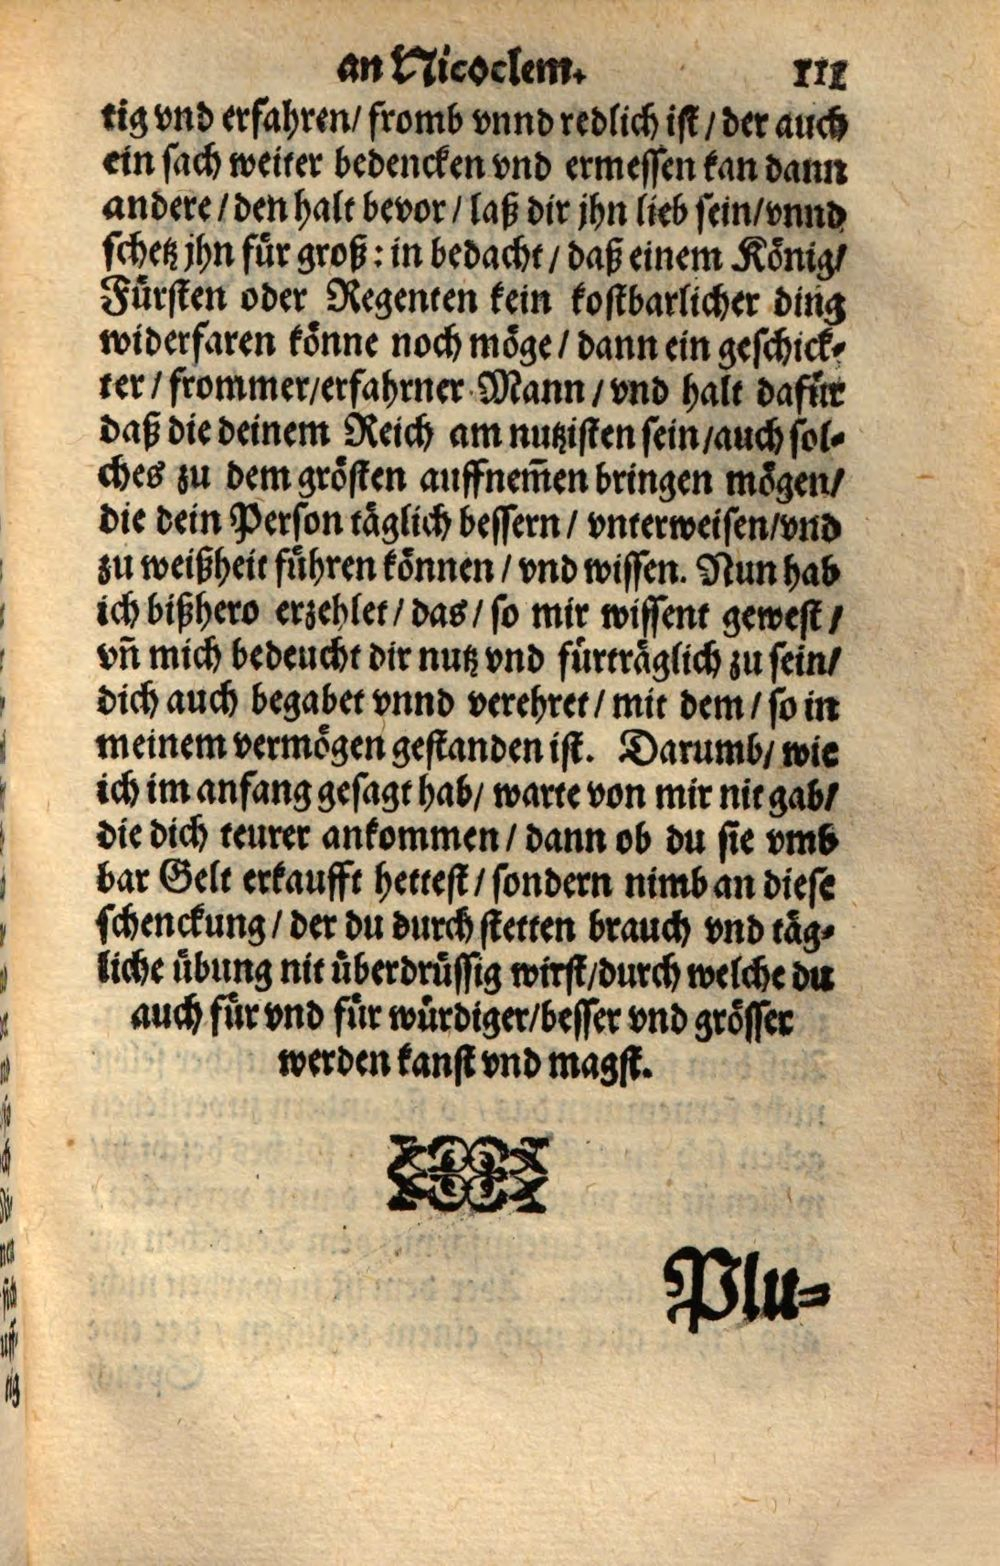 an Nicoclem. 111
tig vnd erfahren/ fromb vnnd redlich ist / der auch
ein sach weiter bedencken vnd ermessen kan dann
andere / den halt bevor / laß dir jhn lieb sein/vnnd
schetz jhn für groß: in bedacht / daß einem König/
Fürsten oder Regenten kein kostbarlicher ding
widerfaren könne noch möge / dann ein geschick-
ter / frommer/erfahrner Mann / vnd halt dafür
daß die deinem Reich am nutzisten sein /auch sol-
ches zu dem grösten auffnem̃en bringen mögen/
die dein Person täglich bessern / vnterweisen/vnd
zu weißheit führen können / vnd wissen. Nun hab
ich bißhero erzehlet / das / so mir wissent gewest /
vñ mich bedeucht dir nutz vnd fürträglich zu sein/
dich auch begabet vnnd verehret / mit dem / so in
meinem vermögen gestanden ist. Darumb/ wie
ich im anfang gesagt hab/ warte von mir nit gab/
die dich teurer ankommen / dann ob du sie vmb
bar Gelt erkaufft hettest / sondern nimb an diese
schenckung / der du durch stetten brauch vnd täg-
liche übung nit überdrüssig wirst/durch welche du
auch für vnd für würdiger/besser vnd grösser
werden kanst vnd magst.
Plu-